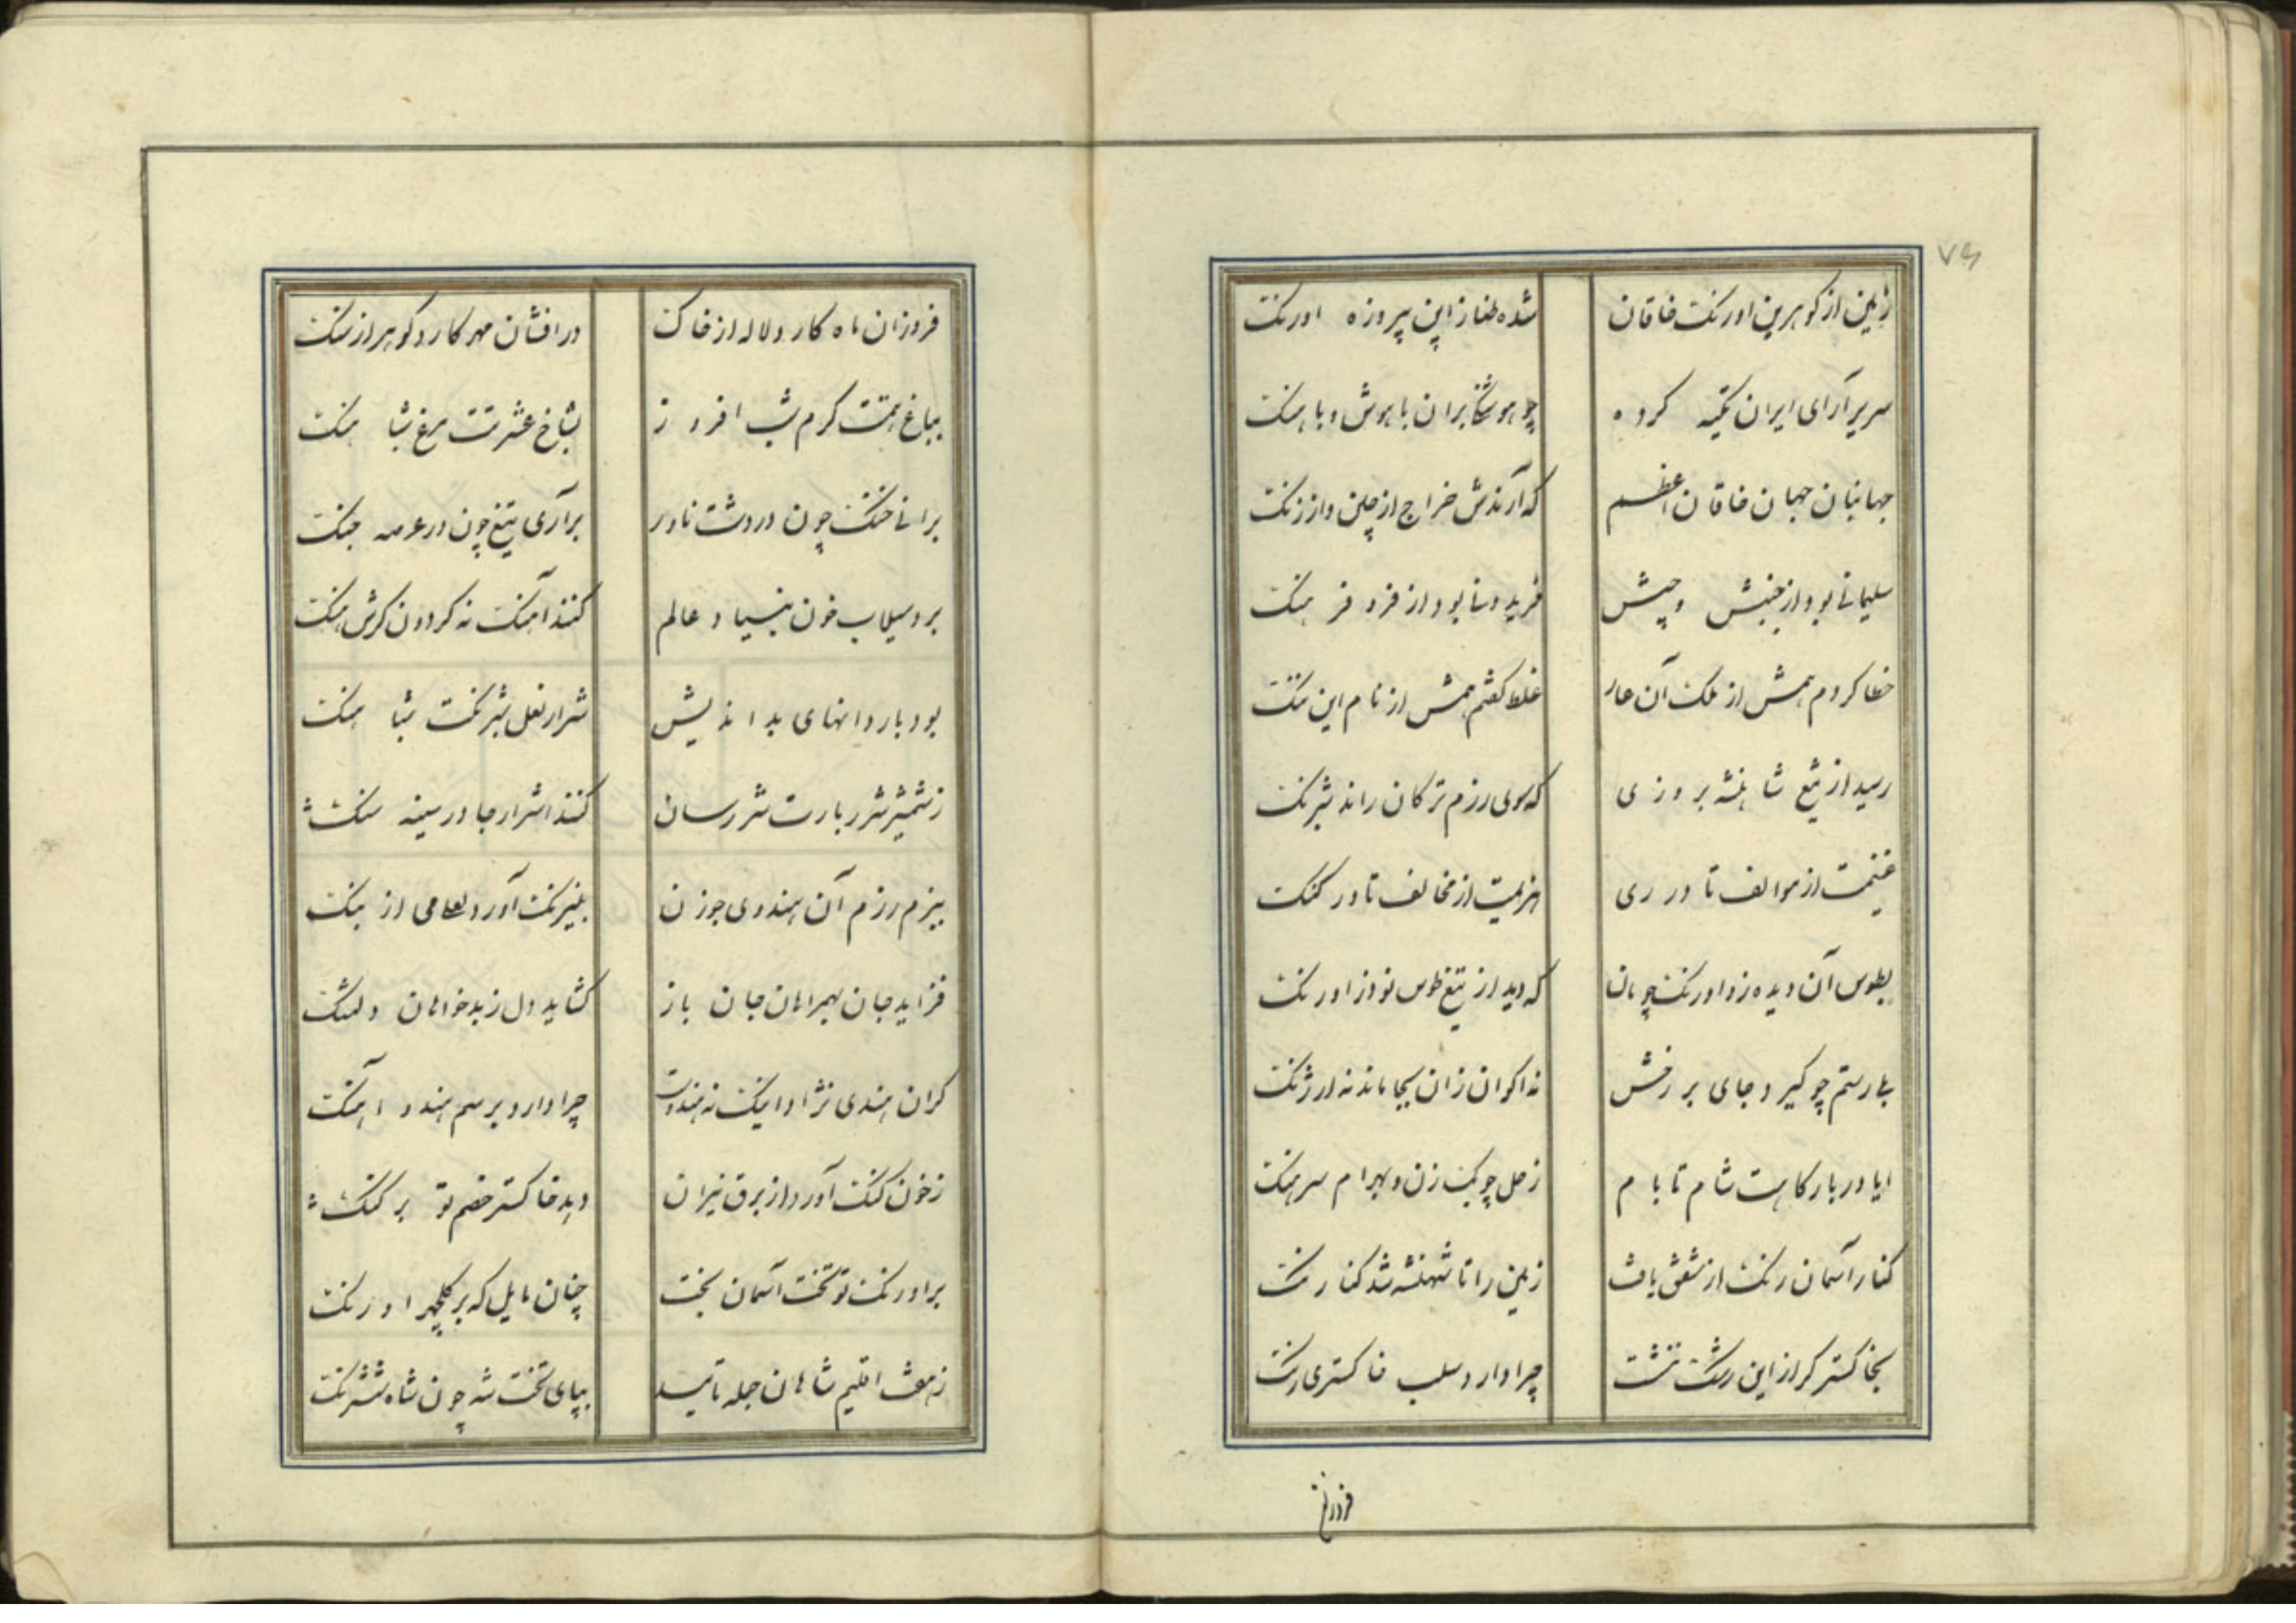 ۷۶
زمین از گوهرین اورنگ خاقان شده طناز این پیروزه اورنگ
سریر آرای ایران تکیه کرده چو هوشنگ بران با هوش و با هنگ
جهانبان جهان خاقان اعظم که آرندش خراج از چین و از زنگ
سلیمانی بود از جنبش و جیش فریدونی بود از فر و فرهنگ
خطا کردم همش از ملک آن عار غلط گفتم همش از نام این ننگ
رسید از تیغ شاهنشه بروزی که سوی رزم ترکان راند شبرنگ
غنیمت از موالف تا در ری هزیمت از مخالف تا در گنگ
بطوس آن دیده زو اورنگ چونان که دید از تیغ طوس نوذر اورنگ
بلی رستم چو گیرد جای بر رخش نه اکوان زان بجا ماند نه ارژنگ
ایا دربار گاهت شام تا بام زحل چوبک زن و بهرام سرهنگ
کنار آسمان رنگ از شفق یافت زمین را تا شهنشه شد کنارنگ
بخاکستر گر از این رشک ننشست چرا دارد سلب خاکستری رنگ
فروزان
فروزان ماه کارد لاله از خاک درافشان مهر کارد گوهر از سنگ
بباغ همتت کرم شب افروز بشاخ عشرتت مرغ شباهنگ
برانی خنگ چون در دشت ناورد برآری تیغ چون در عرصه جنگ
برد سیلاب خون بنیاد عالم کند آهنگ نه گردون گرش هنگ
بود با روانهای بداندیش شرار نعل شبرنگت شباهنگ
ز شمشیر شرر بارت شررسان کنند اشرار جا در سینه سنگ
ببزم رزم آن هندوی جوزن بنیرنگ آورد لعلی از بنگ
فزاید جان بهمراهان جان باز گشاید دل ز بدخواهان دلتنگ
گران هندی نژاد اینک نه هندوست چرا دارد برسم هندو آهنگ
ز خون گنگ آورد از برق نیران دهد خاکستر خصم تو بر گنگ
بر اورنگ تو تخت آسمان بخت چنان مایل که بر گلچهر اورنگ
ز هفت اقلیم شاهان جمله تابید بپای تخت شه چون شاه شترنگ